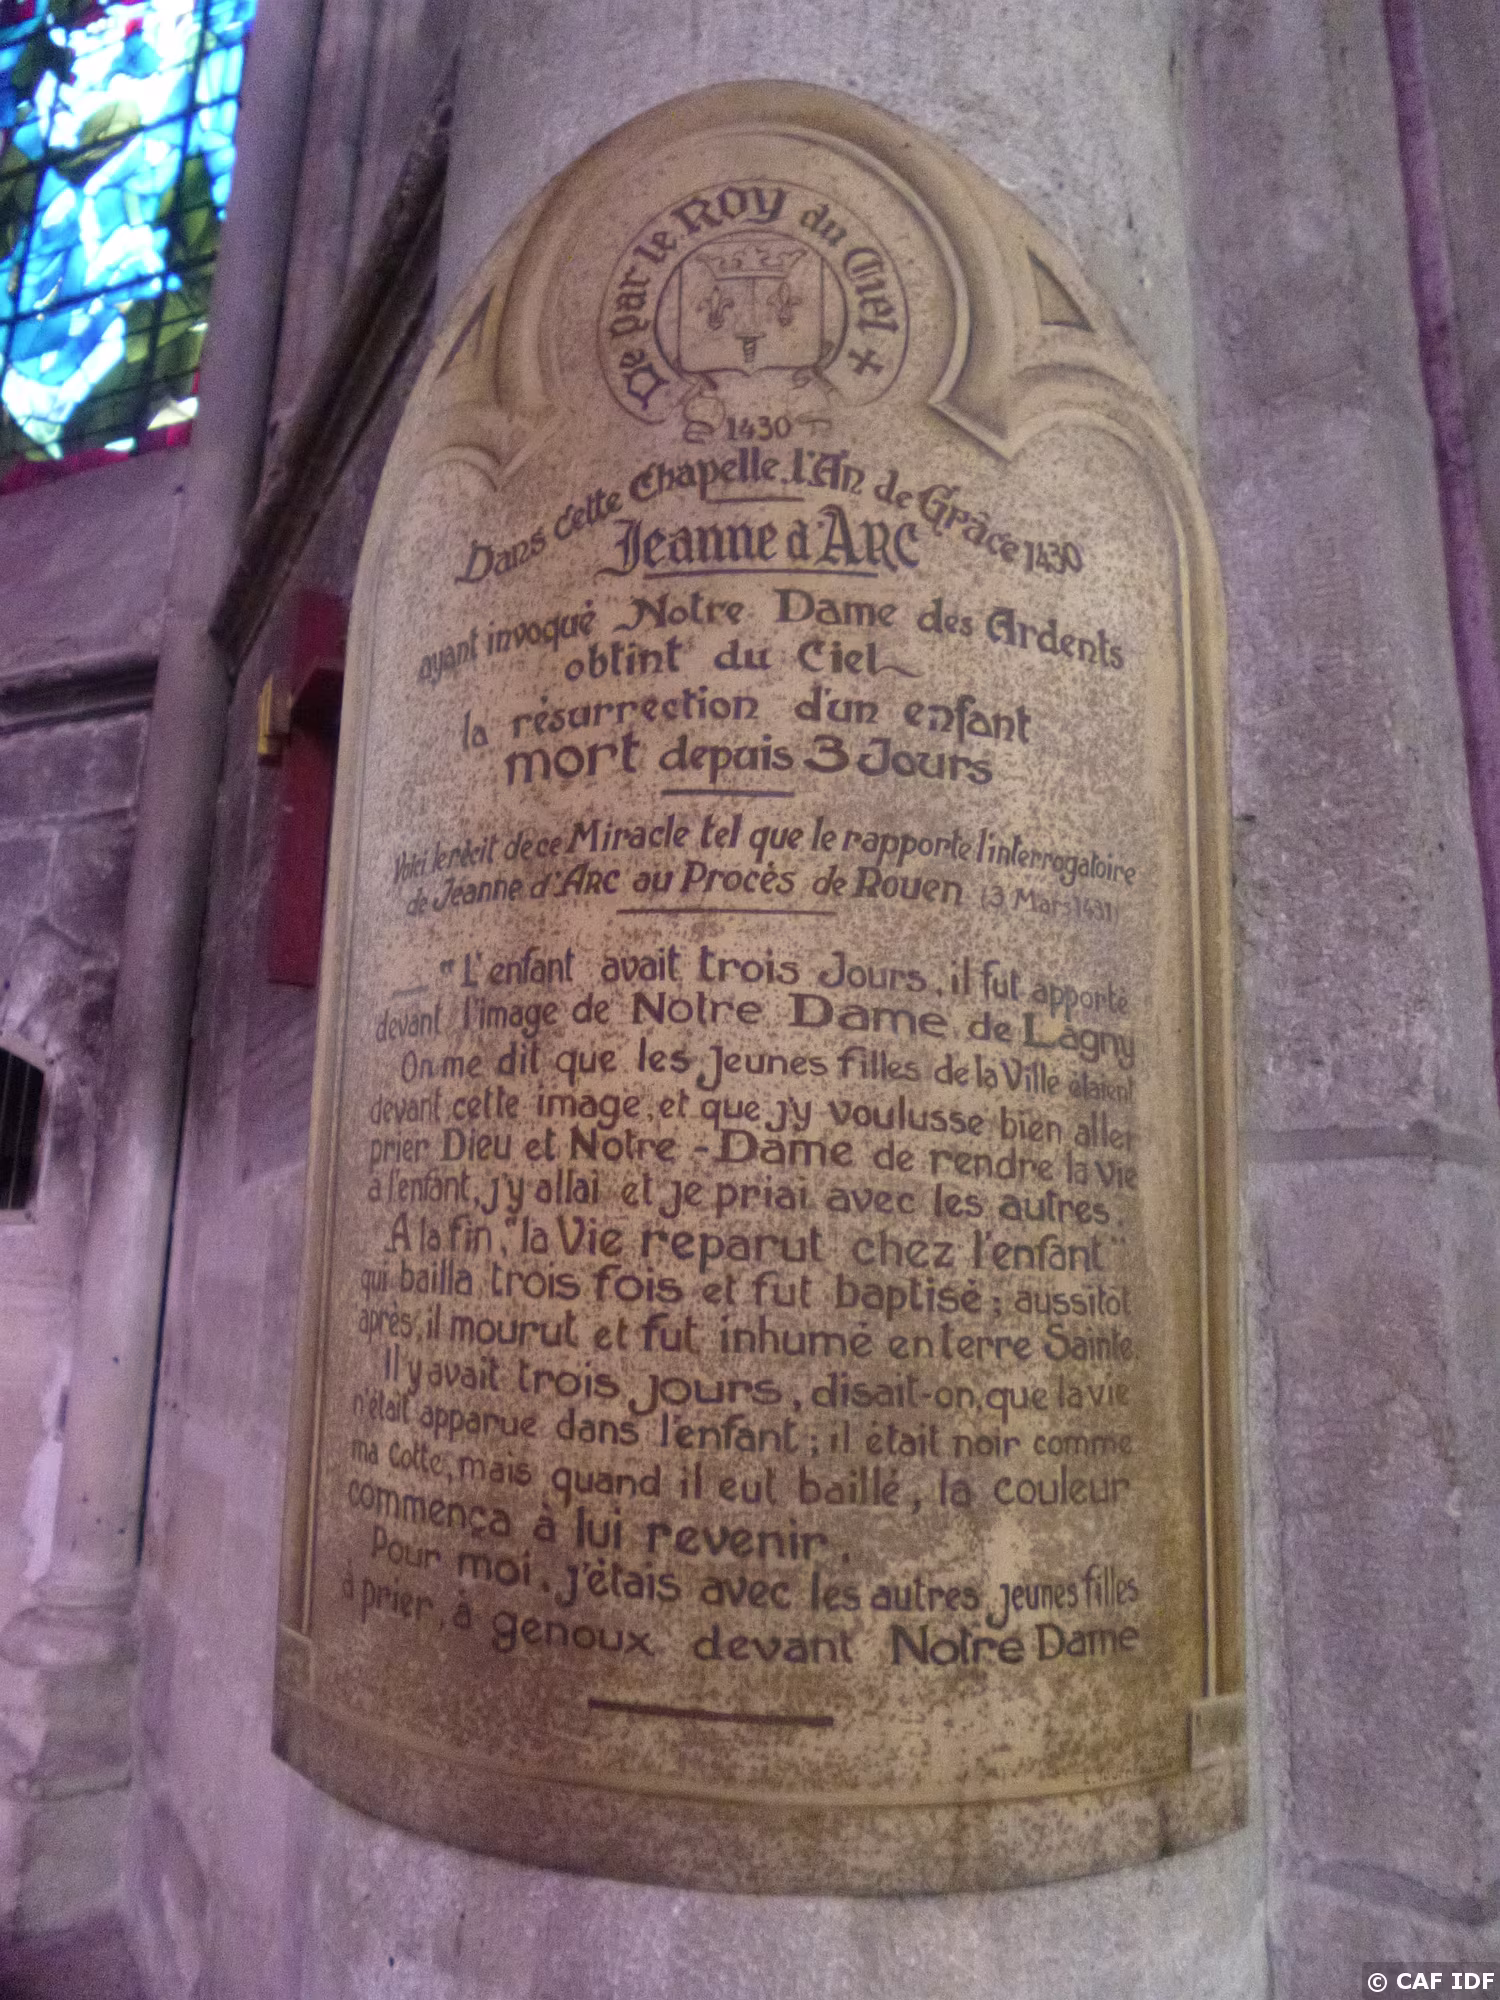 De par le Roy du Ciel +
1430
Dans cette Chapelle, l'An de Grâce 1430
Jeanne d'ARC
ayant invoqué Notre Dame des Ardents
obtint du Ciel
la résurrection d'un enfant
mort depuis 3 Jours
Voici le récit de ce Miracle tel que le rapporte l'interrogatoire
de Jeanne d'ARC au Procès de Rouen (3 Mars 1431)
_ "L'enfant avait trois Jours, il fut apporté
devant l'image de Notre Dame de Lagny
On me dit que les Jeunes filles de la Ville étaient
devant cette image, et que j'y voulusse bien aller
prier Dieu et Notre-Dame de rendre la vie
à l'enfant, j'y allai et je priai avec les autres.
A la fin, "la Vie reparut chez l'enfant"
qui bailla trois fois et fut baptisé ; aussitôt
après, il mourut et fut inhumé en terre Sainte.
Il y avait trois jours, disait-on, que la vie
n'était apparue dans l'enfant ; il était noir comme
ma cotte, mais quand il eut baillé, la couleur
commença à lui revenir.
Pour moi, j'étais avec les autres jeunes filles
à prier, à genoux devant Notre Dame
© CAF IDF